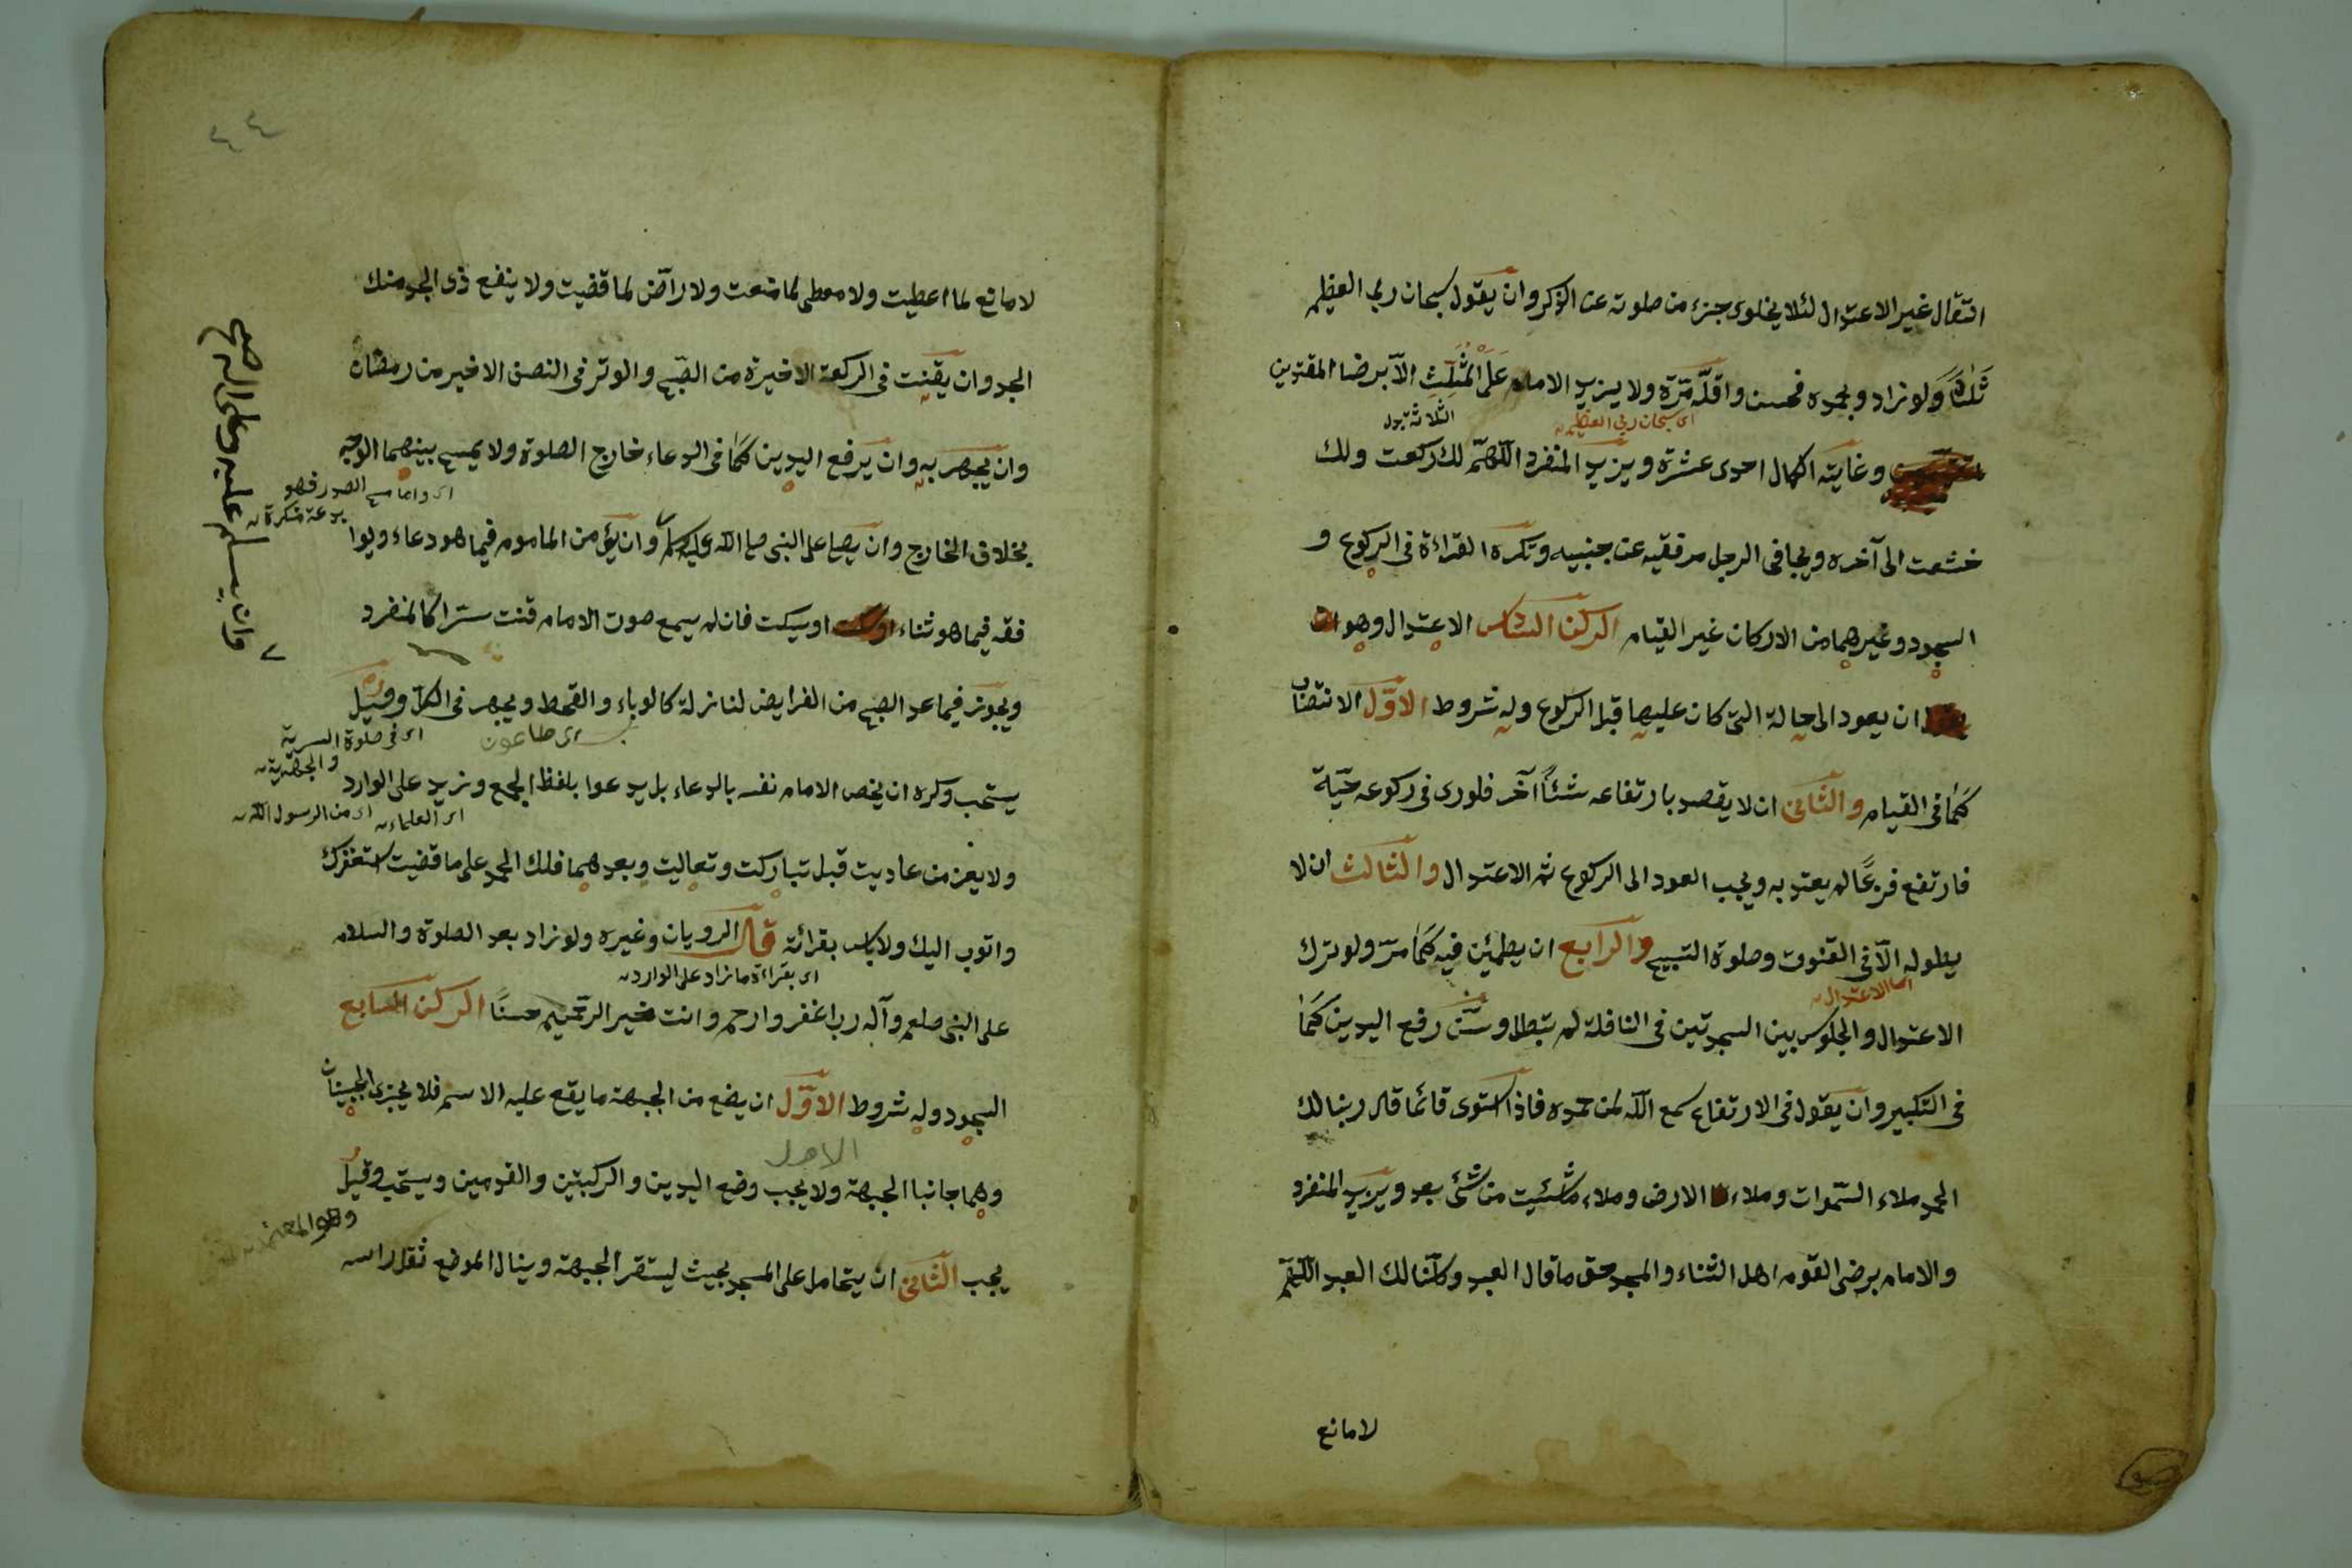 انتقال غير الاعتدال لئلا يخلوى جزء من صلوته عن الذكر وان يقول سبحان ربي العظيم
ثلثا ولو زاد وبحمده فحسن واقله مرّة ولا يزيد الامام على المثلث الّا برضا المقتدين
اى سبحان ربي العظيم
وغاية الكمال احدى عشرة ويزيد المنفرد اللّهمّ لك ركعت ولك
خشعت الى آخره ويجافى الرجل مرفقيه عن جنبيه وتكره القراءة فى الركوع و
السجود وغيرهما من الاركان غير القيام الركن السادس الاعتدال وهو
ان يعود الى حالة التى كان عليها قبل الركوع وله شروط الاوّل الانتصاب
كما فى القيام والثّانى ان لا يقصد بارتفاعه شئًا آخر فلورى فى ركوعه حيّة
فارتفع فزعًا لم يعتد به ويجب العود الى الركوع ثم الاعتدال والثالث ان لا
يطوله الّا فى القنوت وصلوة التسبيح والرابع ان يطمئن فيه كما مرّ ولو ترك
اى الاعتدال
الاعتدال والجلوس بين السجدتين فى النافلة لم تبطل وسنّ رفع اليدين كما
فى التكبير وان يقول فى الارتفاع سمع اللّه لمن حمده فاذا استوى قائما قال ربنا لك
الحمد ملاء السّموات وملاء الارض وملاء ما شئيت من شئ بعد ويزيد المنفرد
والامام برضى القوم اهل الثناء والمجد حق ما قال العبد وكلّنا لك العبد اللّهمّ
لا مانع
لا مانع لما اعطيت ولا معطى لما منعت ولا رادّ لما قضيت ولا ينفع ذى الجد منك
الجد وان يقنت فى الركعة الاخيرة من الصّبح والوتر فى النصف الاخير من رمضان
وان يجهر به وان يرفع اليدين كما فى الدعاء خارج الصلوة ولا يمسح بينهما الوجه
اى واما مسح الصدر فهو
بدعة منكرة
بخلاف الخارج وان يصلى على النبى صلى اللّه عليه وسلم وان يؤمن الماموم فيما هو دعاء ويوا
وان يسلم عليه وعلى اله صح
فقه فيما هو ثناء او يسكت فان لم يسمع صوت الامام قنت سرّا كالمنفرد
ويجوز فيما عدا الصبح من الفرايض لنازلة كالوباء والقحط ويجهر فى الكلّ وقيل
اى طاعون
اى فى صلوة السرية
والجهرية
يستحب وكره ان يخص الامام نفسه بالدعاء بل يدعوا بلفظ الجمع ونزيد على الوارد
اى العلماء
اى من الرسول اللّه
ولا يعز من عاديت قبل تباركت وتعاليت وبعدهما فلك الحمد على ما قضيت استغفرك
واتوب اليك ولا باس بقرائته قال الرويان وغيره ولو زاد بعد الصلوة والسلام
اى بقراءة ما زاد على الوارد
على النبى صلعم وآله رب اغفر وارحم وانت خير الرّحمين حسنًا الركن السابع
السجود وله شروط الاوّل ان يضع من الجبهة ما يقع عليه الاسم فلا يجزى الجبينان
الاول
وهما جانبا الجبهة ولا يجب وضع اليدين والركبتين والقدمين ويستحب وقيل
وهو المعتمد
يجب الثّانى ان يتحامل على المسجد بحيث ليستقر الجبهة وينال الموضع ثقل راسه